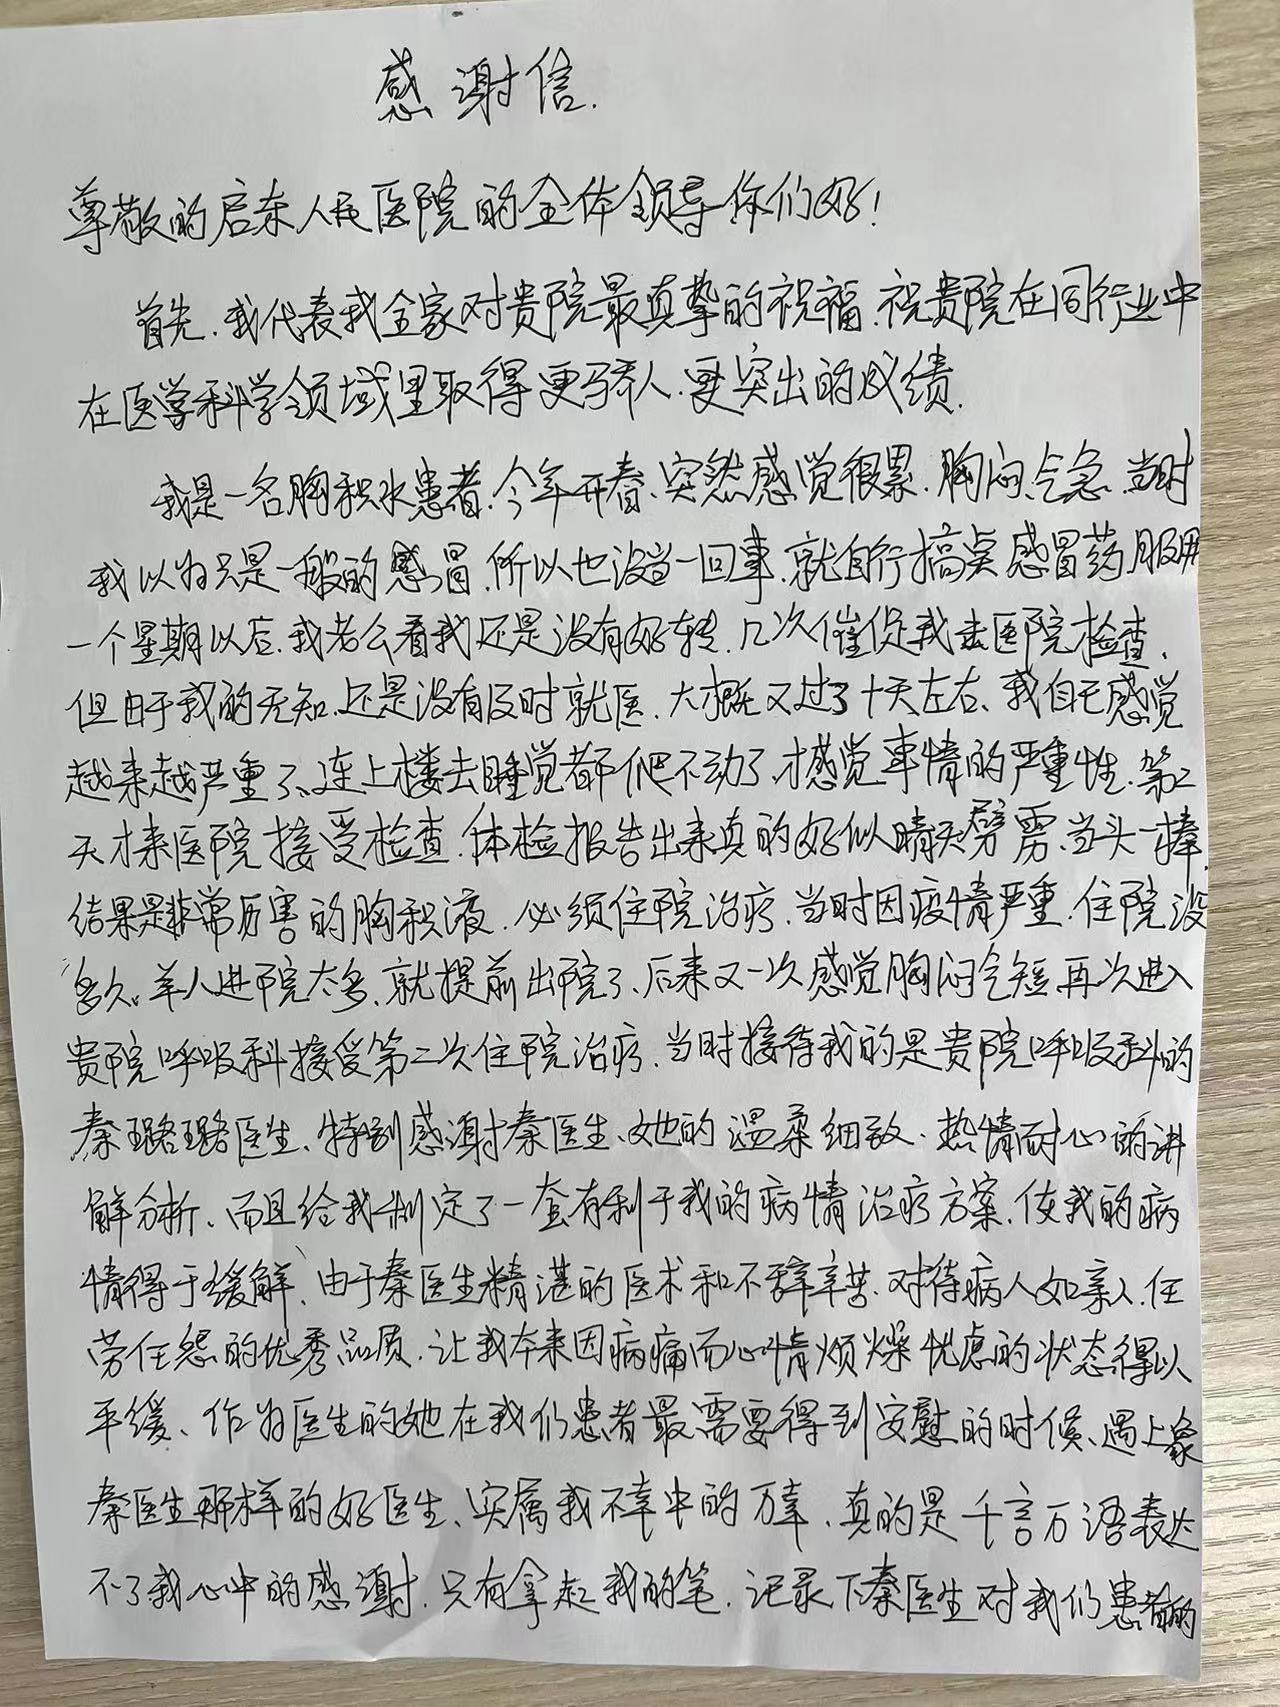 感谢信.
尊敬的启东人民医院的全体领导你们好!
首先.我代表我全家对贵院最真挚的祝福.祝贵院在同行业中
在医学科学领域里取得更骄人.更突出的成绩.
我是一名胸积水患者.今年开春、突然感觉很累.胸闷、气急、当时
我以为只是一般的感冒.所以也没当一回事.就自行搞点感冒药服用
一个星期以后.我老公看我还是没有好转.几次催促我去医院检查.
但由于我的无知.还是没有及时就医.大概又过了十天左右、我自己感觉
越来越严重了、连上楼去睡觉都爬不动了、才感觉事情的严重性.第二
天才来医院接受检查.体检报告出来真的好似晴天劈雳.当头一棒.
结果是非常厉害的胸积液.必须住院治疗.当时因疫情严重.住院没
多久。羊人进院太多、就提前出院了、后来又一次感觉胸闷气短.再次进入
贵院呼吸科接受第二次住院治疗.当时接待我的是贵院呼吸科的
秦璐璐医生、特别感谢秦医生、她的温柔细致、热情耐心的讲
解分析、而且给我制定了一套有利于我的病情治疗方案.使我的病
情得于缓解、由于秦医生精湛的医术和不辞辛苦.对待病人如亲人.任
劳任怨的优秀品质.让我本来因病痛而心情烦燥忧虑的状态得以
平缓、作为医生的她在我们患者最需要得到安慰的时候、遇上象
秦医生那样的好医生、实属我不幸中的万幸、真的是千言万语表达
不了我心中的感谢.只有拿起我的笔.记录下秦医生对我们患者的